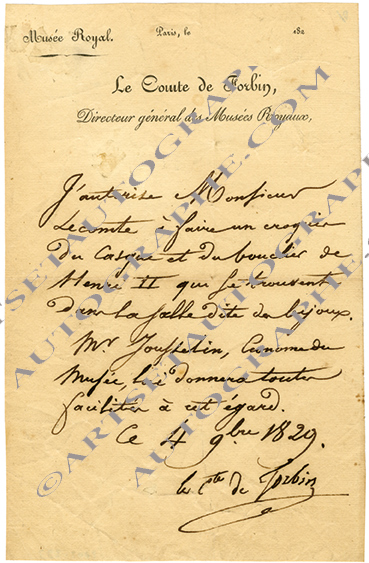 Musée Royal.
Paris, le 182
Le Comte de Forbin,
Directeur général des Musées Royaux,
J'autorise Monsieur
Lecomte à faire un croquis
du Casque et du bouclier de
Henri II qui se trouvent
dans la salle dite des bijoux.
Mr Jousselin, Econome du
Musée, lui donnera toutes
facilités à cet égard.
Ce 4 9bre 1829.
le Cte de Forbin
©ARTSETAUTOGRAPHE.COM